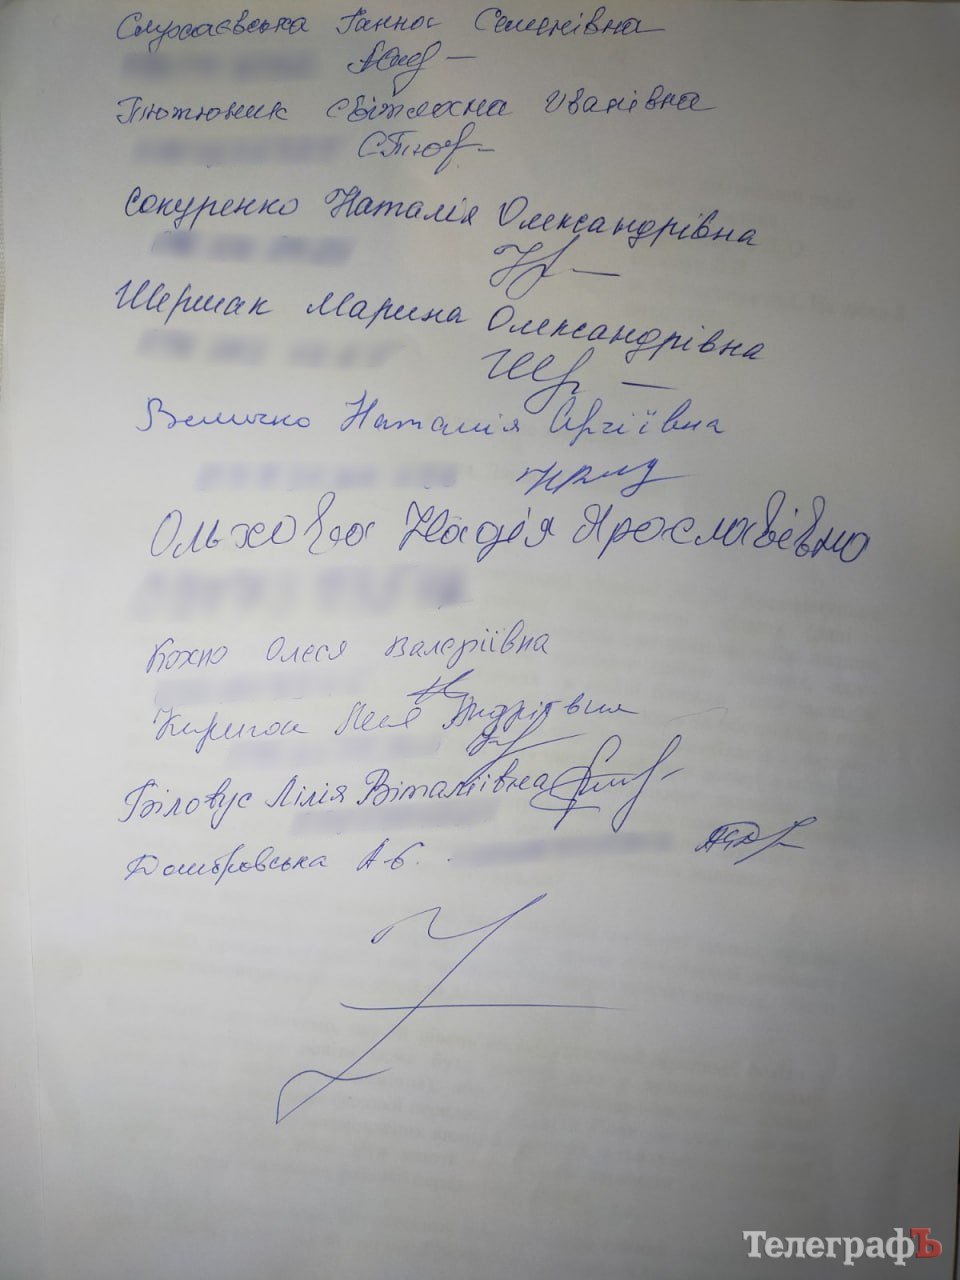 Слухаєвська Ганна Семенівна
Тютюник Світлана Іванівна
СТют
Сокуренко Наталія Олександрівна
Шершак Марина Олександрівна
Величко Наталія Сергіївна
Ольхова Надія Ярославівна
Кохно Олеся Валеріївна
Леся Андріївна
Біловус Лілія Віталіївна
Домбровська А.В.
ТелеграфЪ